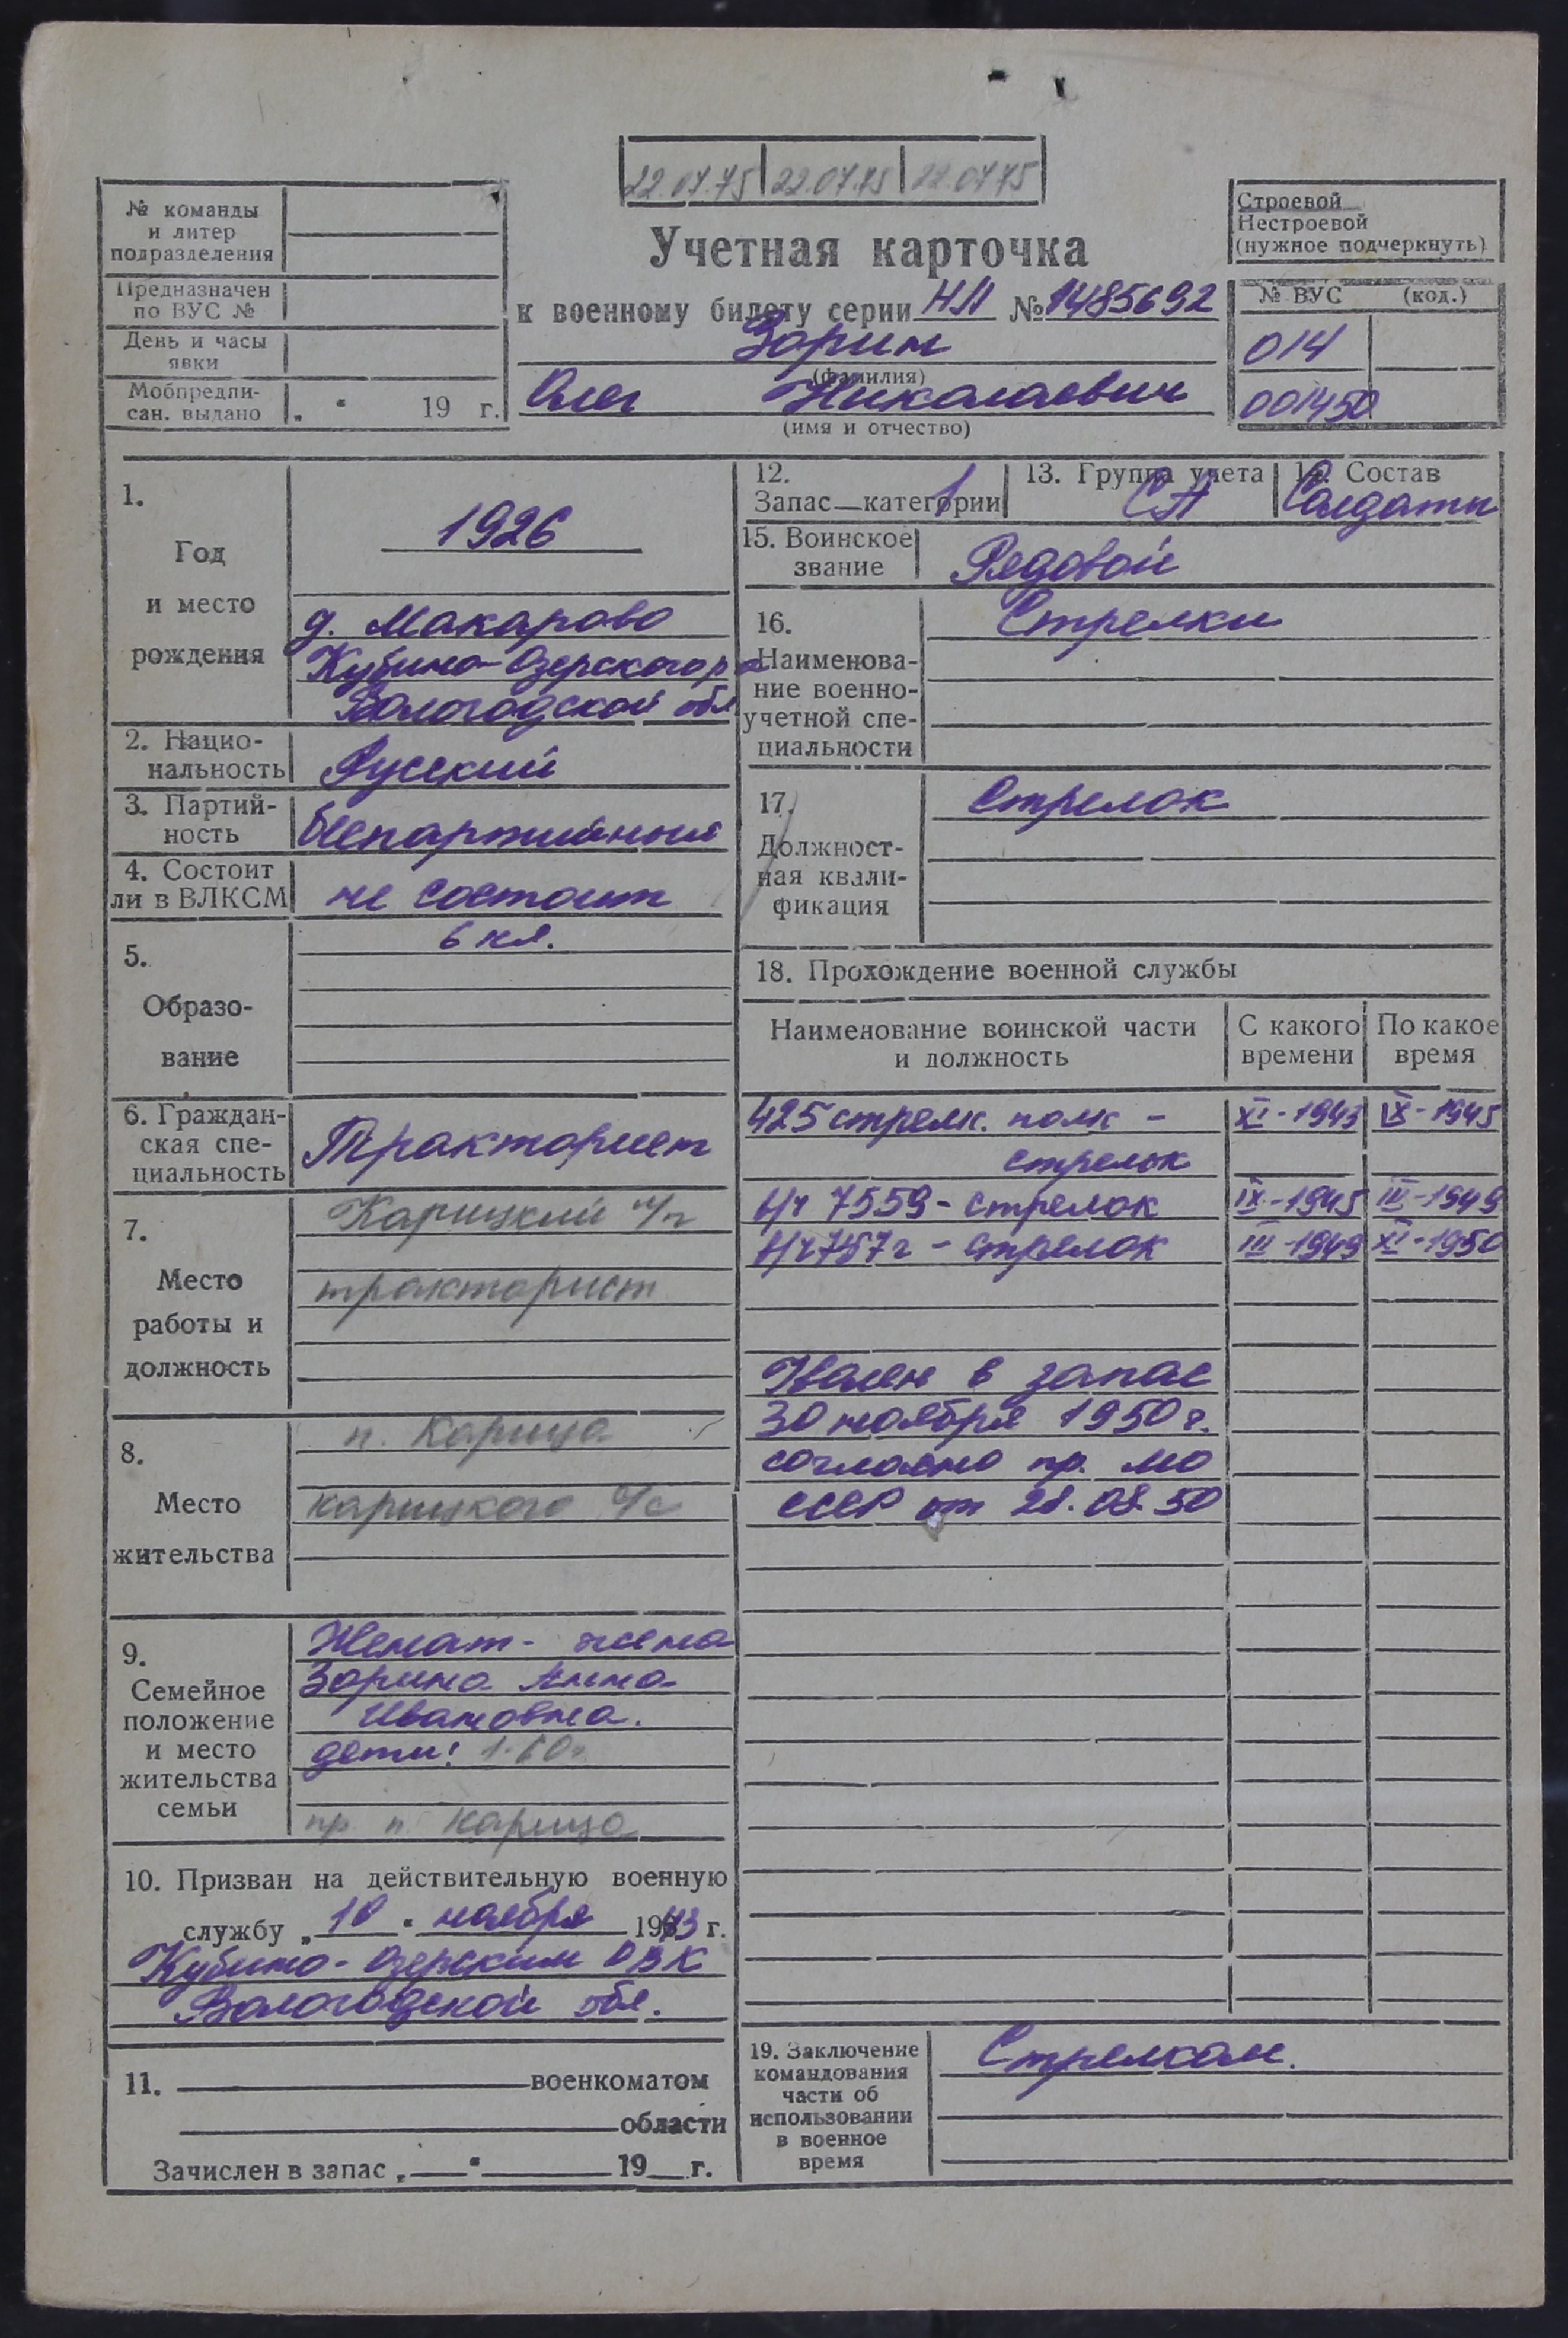 22.07.75 22.07.75 22.07.75
№ команды
и литер
подразделения
Предназначен
по ВУС №
День и часы
явки
Мобпредпи-
сан. выдано „ " 19 г.
Учетная карточка
к военному билету серии НЛ № 1485692
Зорин
(фамилия)
Олег Николаевич
(имя и отчество)
Строевой
Нестроевой
(нужное подчеркнуть)
№ ВУС (код.)
014
001450
1.
Год
и место
рождения
1926
д. Макарово
Кубино-Озерского р-
Вологодской обл
2. Нацио-
нальность
Русский
3. Партий-
ность
беспартийный
4. Состоит
ли в ВЛКСМ
не состоит
5.
Образо-
вание
6 кл.
6. Граждан-
ская спе-
циальность
Тракторист
7.
Место
работы и
должность
Карицкий
тракторист
8.
Место
жительства
п. Карица
карицкого с/с
9.
Семейное
положение
и место
жительства
семьи
Женат - жена
Зорина Анна
Ивановна.
дети: 1-60г.
пр. п. Карица
10. Призван на действительную военную
службу „ 10 " ноября 1943 г.
Кубино-Озерским РВК
Вологодской обл.
11. военкоматом
области
Зачислен в запас „ " 19 г.
12.
Запас—категории 1
13. Группа учета
СА
14. Состав
Солдаты
15. Воинское
звание
Рядовой
16.
Наименова-
ние военно-
учетной спе-
циальности
Стрелки
17.
Должност-
ная квали-
фикация
Стрелок
18. Прохождение военной службы
Наименование воинской части
и должность
С какого
времени
По какое
время
425 стрелк. полк - XI-1943 IX-1945
стрелок
в/ч 7559 - стрелок IX-1945 III-1949
в/ч 7157г - стрелок III-1949 XI-1950
Уволен в запас
30 ноября 1950 г.
согласно пр. МО
СССР от 28.08.50
19. Заключение
командования
части об
использовании
в военное
время
Стрелком.